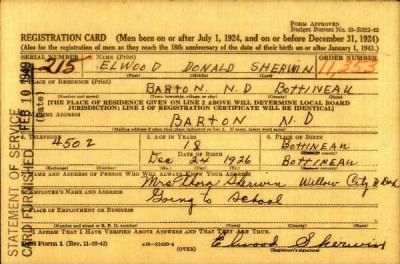 FORM APPROVED
Budget Bureau No. 33-R012-42
REGISTRATION CARD (Men born on or after July 1, 1924, and on or before December 31, 1924)
(Also for the registration of men as they reach the 18th anniversary of the date of their birth on or after January 1, 1943.)
SERIAL NUMBER
ORDER NUMBER
215 ELWOOD DONALD SHERWIN 11,353
2. PLACE OF RESIDENCE (Print)
BARTON. N.D BOTTINEAU
[THE PLACE OF RESIDENCE GIVEN ON LINE 2 ABOVE WILL DETERMINE LOCAL BOARD
JURISDICTION; LINE 2 OF REGISTRATION CERTIFICATE WILL BE IDENTICAL]
ADDRESS
BARTON N.D
TELEPHONE
AGE IN YEARS
6. PLACE OF BIRTH
4502
18
BOTTINEAU
DATE OF BIRTH
Dec 24 1926
BOTTINEAU
NAME AND ADDRESS OF PERSON WHO WILL ALWAYS KNOW YOUR ADDRESS
Mrs Sherwin Willow City N Dak
EMPLOYER'S NAME AND ADDRESS
Going to School
PLACE OF EMPLOYMENT OR BUSINESS
I AFFIRM THAT I HAVE VERIFIED ABOVE ANSWERS AND THAT THEY ARE TRUE.
Form 1 (Rev. 11-16-42)
(OVER)
Elwood Sherwin
(Registrant's signature)
STATEMENT OF SERVICE
CARD FURNISHED FEB 10
(Date)